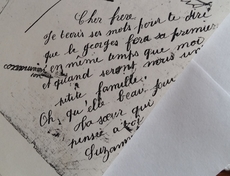 Cher frere
Je tecris ses mots pour te dire
que le georges fera sa premiere
communion en même temps que moi
et quand seront nous un
ptite famille.
Oh, qu'elle beau jour
ta sœur qui
pensée a toi
Suzann